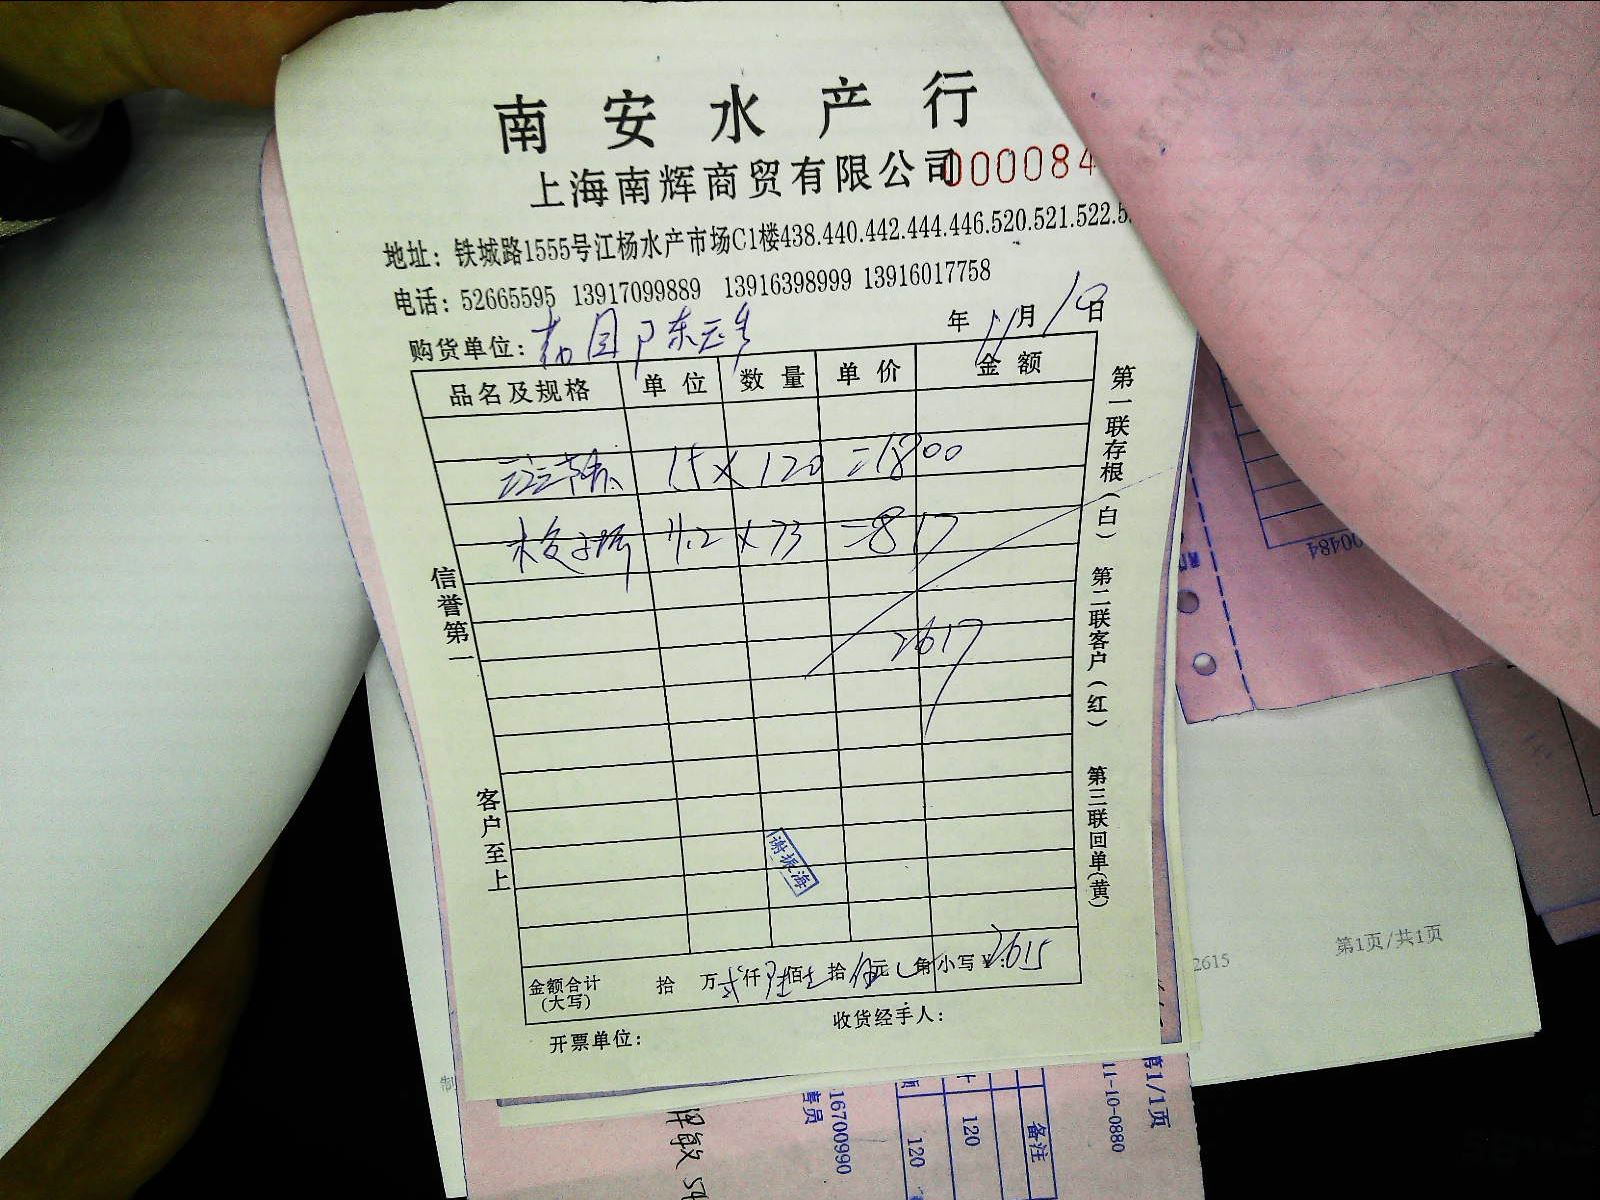 南安水产行
上海南辉商贸有限公司 000084
地址：铁城路1555号江杨水产市场C1楼438.440.442.444.446.520.521.522.5
电话：52665595 13917099889 13916398999 13916017758
购货单位： 年 11月18日
品名及规格 单位 数量 单价 金额
15×120=1800
11.2×73=817
2617
信誉第一
客户至上
第一联存根（白） 第二联客户（红） 第三联回单（黄）
谢振海
金额合计（大写） 拾 万 贰仟 陆佰 拾 伍元 角 小写￥：2615
开票单位： 收货经手人：
第1页/共1页
2615
00484
制
16700990
售员
120
120
备注
11-10-0880
第1/1页